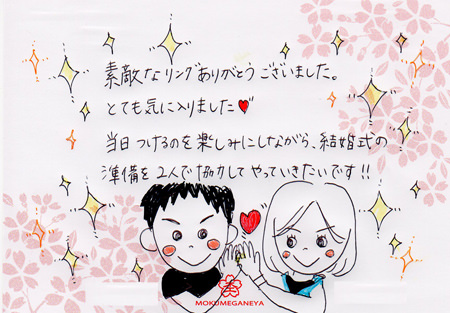 素敵なリングありがとうございました。
とても気に入りました
当日つけるのを楽しみにしながら、結婚式の
準備を2人で協力してやっていきたいです!!
MOKUMEGANEYA